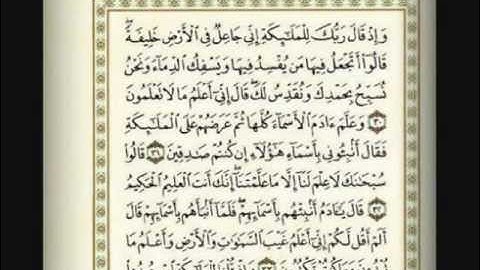 وَإِذْ قَالَ رَبُّكَ لِلْمَلَٰٓئِكَةِ إِنِّى جَاعِلٌ فِى ٱلْأَرْضِ خَلِيفَةً ۖ
قَالُوٓا۟ أَتَجْعَلُ فِيهَا مَن يُفْسِدُ فِيهَا وَيَسْفِكُ ٱلدِّمَآءَ وَنَحْنُ
نُسَبِّحُ بِحَمْدِكَ وَنُقَدِّسُ لَكَ ۖ قَالَ إِنِّىٓ أَعْلَمُ مَا لَا تَعْلَمُونَ
٣٠ وَعَلَّمَ ءَادَمَ ٱلْأَسْمَآءَ كُلَّهَا ثُمَّ عَرَضَهُمْ عَلَى ٱلْمَلَٰٓئِكَةِ
فَقَالَ أَنۢبِـُٔونِى بِأَسْمَآءِ هَٰٓؤُلَآءِ إِن كُنتُمْ صَٰدِقِينَ ٣١ قَالُوا۟
سُبْحَٰنَكَ لَا عِلْمَ لَنَآ إِلَّا مَا عَلَّمْتَنَآ ۖ إِنَّكَ أَنتَ ٱلْعَلِيمُ ٱلْحَكِيمُ
٣٢ قَالَ يَٰٓـَٔادَمُ أَنۢبِئْهُم بِأَسْمَآئِهِمْ ۖ فَلَمَّآ أَنۢبَأَهُم بِأَسْمَآئِهِمْ قَالَ
أَلَمْ أَقُل لَّكُمْ إِنِّىٓ أَعْلَمُ غَيْبَ ٱلسَّمَٰوَٰتِ وَٱلْأَرْضِ وَأَعْلَمُ مَا